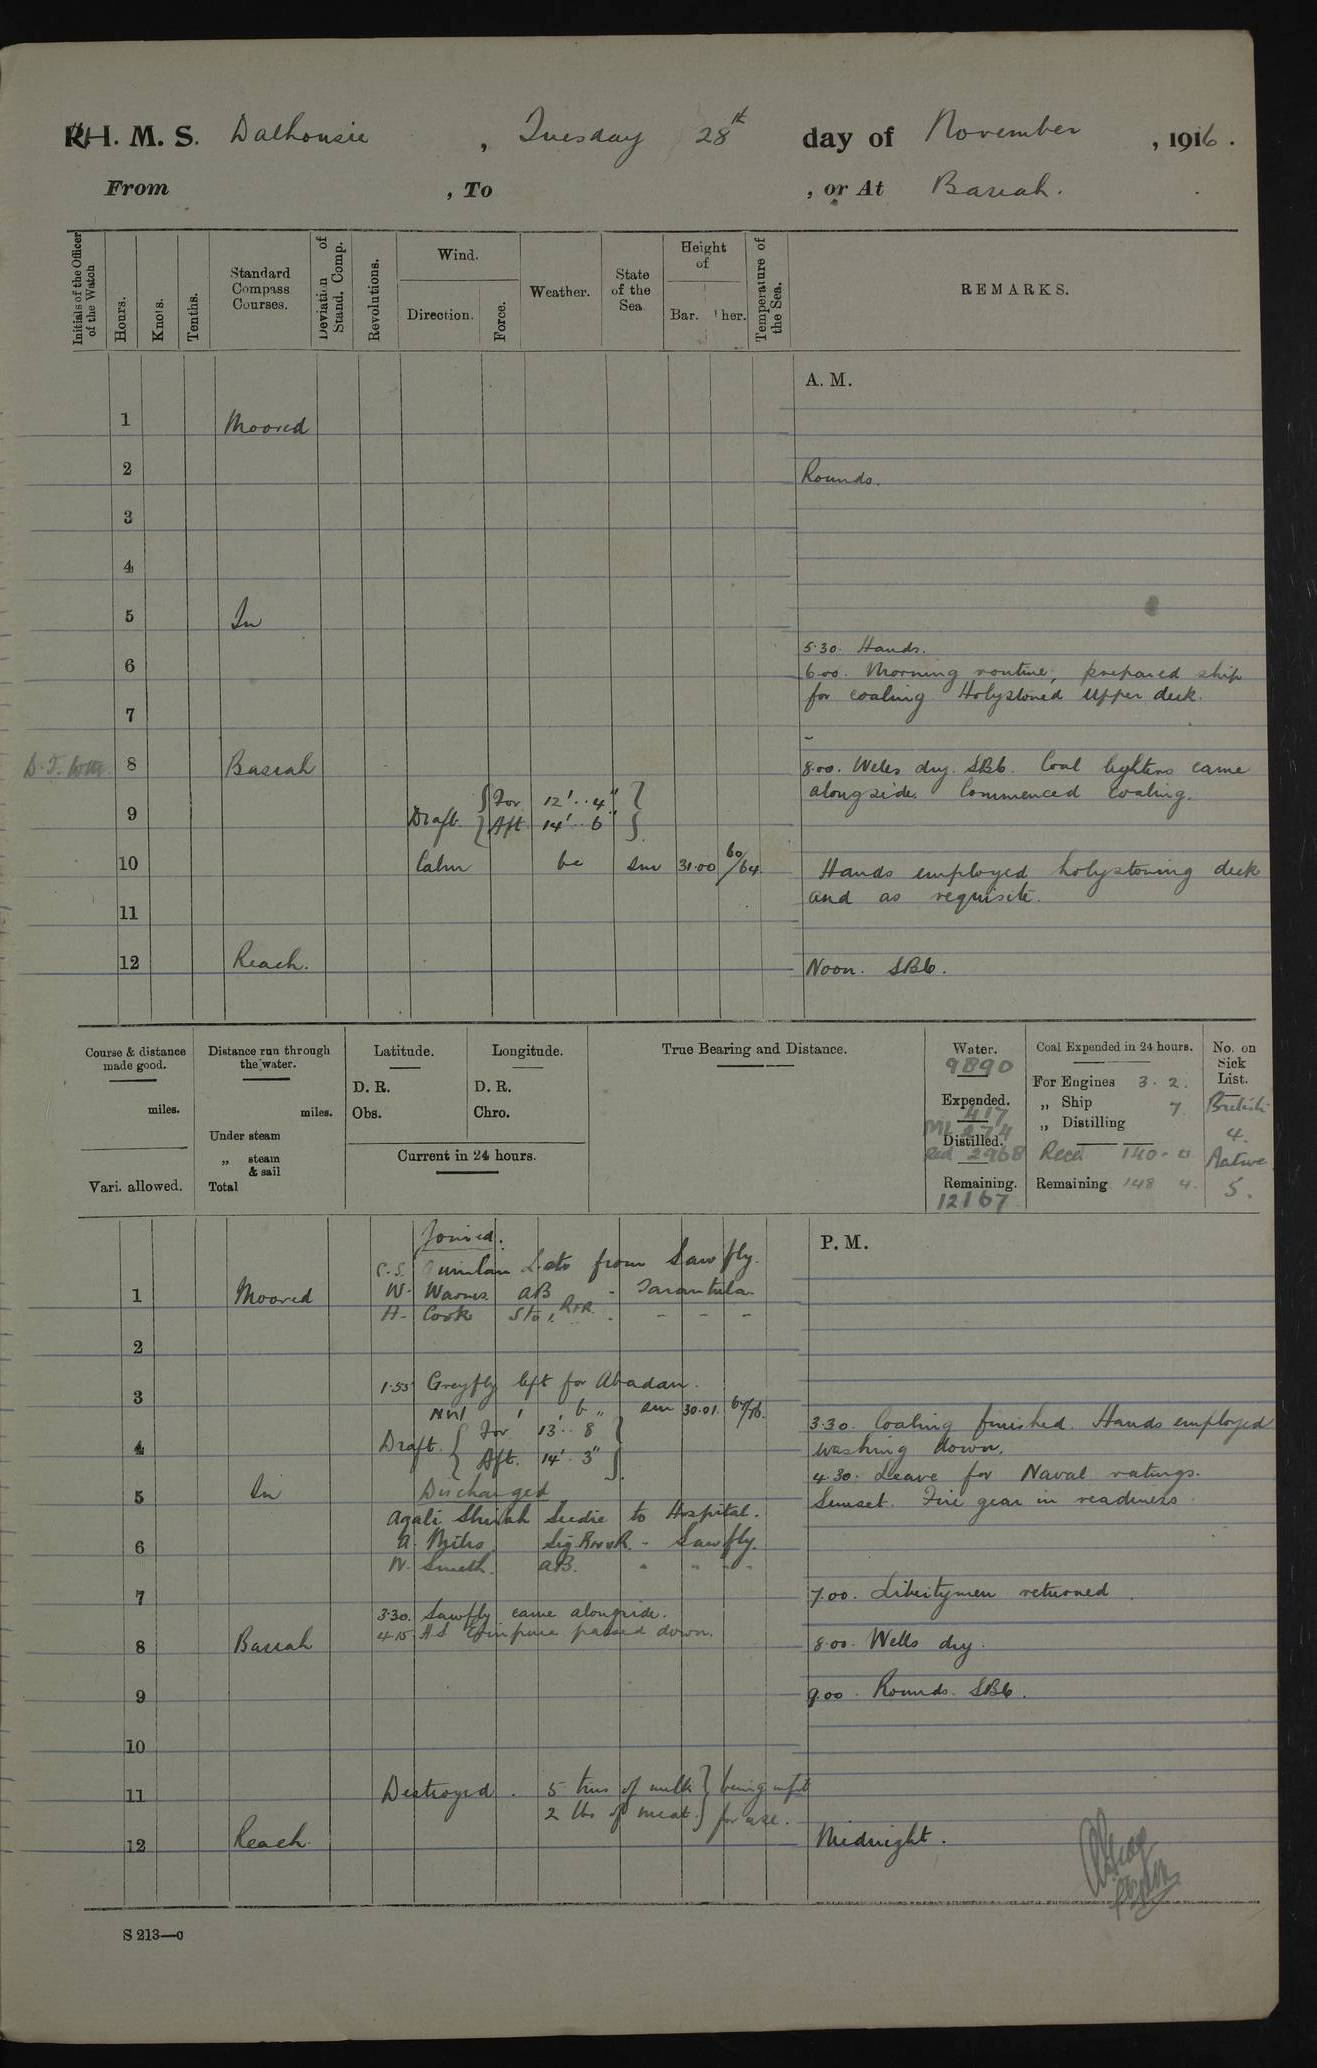 H. M. S. Dalhousie , Tuesday 28th day of November , 1916.
From , To , or At Basrah.
Initials of the Officer of the Watch
Hours.
Knots.
Tenths.
Standard Compass Courses.
Deviation of Stand. Comp.
Revolutions.
Wind.
Direction.
Force.
Weather.
State of the Sea
Height of
Bar. her.
Temperature of the Sea.
REMARKS.
A. M.
1 Moored
2 Rounds.
3
4
5 In
5.30. Hands.
6 6.00. Morning routine, prepared ship
for coaling Holystoned upper deck.
7
8 Basrah 8.00. Wells dry. SB6. Coal lighters came
alongside. Commenced coaling.
Draft. { For 12'..4" }
9 { Aft 14'..6" }
10 Calm bc sm 31.00 60/64. Hands employed holystoning deck
and as requisite.
11
12 Reach. Noon. SB6.
Course & distance made good.
miles.
Vari. allowed.
Distance run through the water.
miles.
Under steam
„ steam & sail
Total
Latitude.
D. R.
Obs.
Longitude.
D. R.
Chro.
Current in 24 hours.
True Bearing and Distance.
Water.
9890
Expended.
417
274
Distilled.
Red 2968
Remaining.
12167
Coal Expended in 24 hours.
For Engines 3. 2.
„ Ship 7
„ Distilling
Recd 140-0
Remaining 148 4.
No. on Sick List.
British
4.
Native
5.
P. M.
Joined.
Quinlan from Sawfly.
1 Moored W. AB - Tarantula
H. Cook Sto, RNR. - - -
2
1.55 Greyfly left for Abadan.
3 NW 1 b „ sm 30.01. 67/76.
3.30. Coaling finished. Hands employed
washing down.
Draft. { For 13'..8 }
4 { Aft. 14'. 3" }
4.30. Leave for Naval ratings.
5 In Discharged
Sunset. Fire gear in readiness.
Seedie to Hospital.
6 Sig. - Sawfly.
N. Smith. AB. " " " "
7 7.00. Libertymen returned
3.30. Sawfly came alongside.
4.15 passed down.
8 Basrah 8.00. Wells dry.
9 9.00. Rounds. SB6.
10
11 Destroyed. 5 tins of milk } being unfit
2 lbs of meat. } for use.
12 Reach. Midnight.
S 213—c